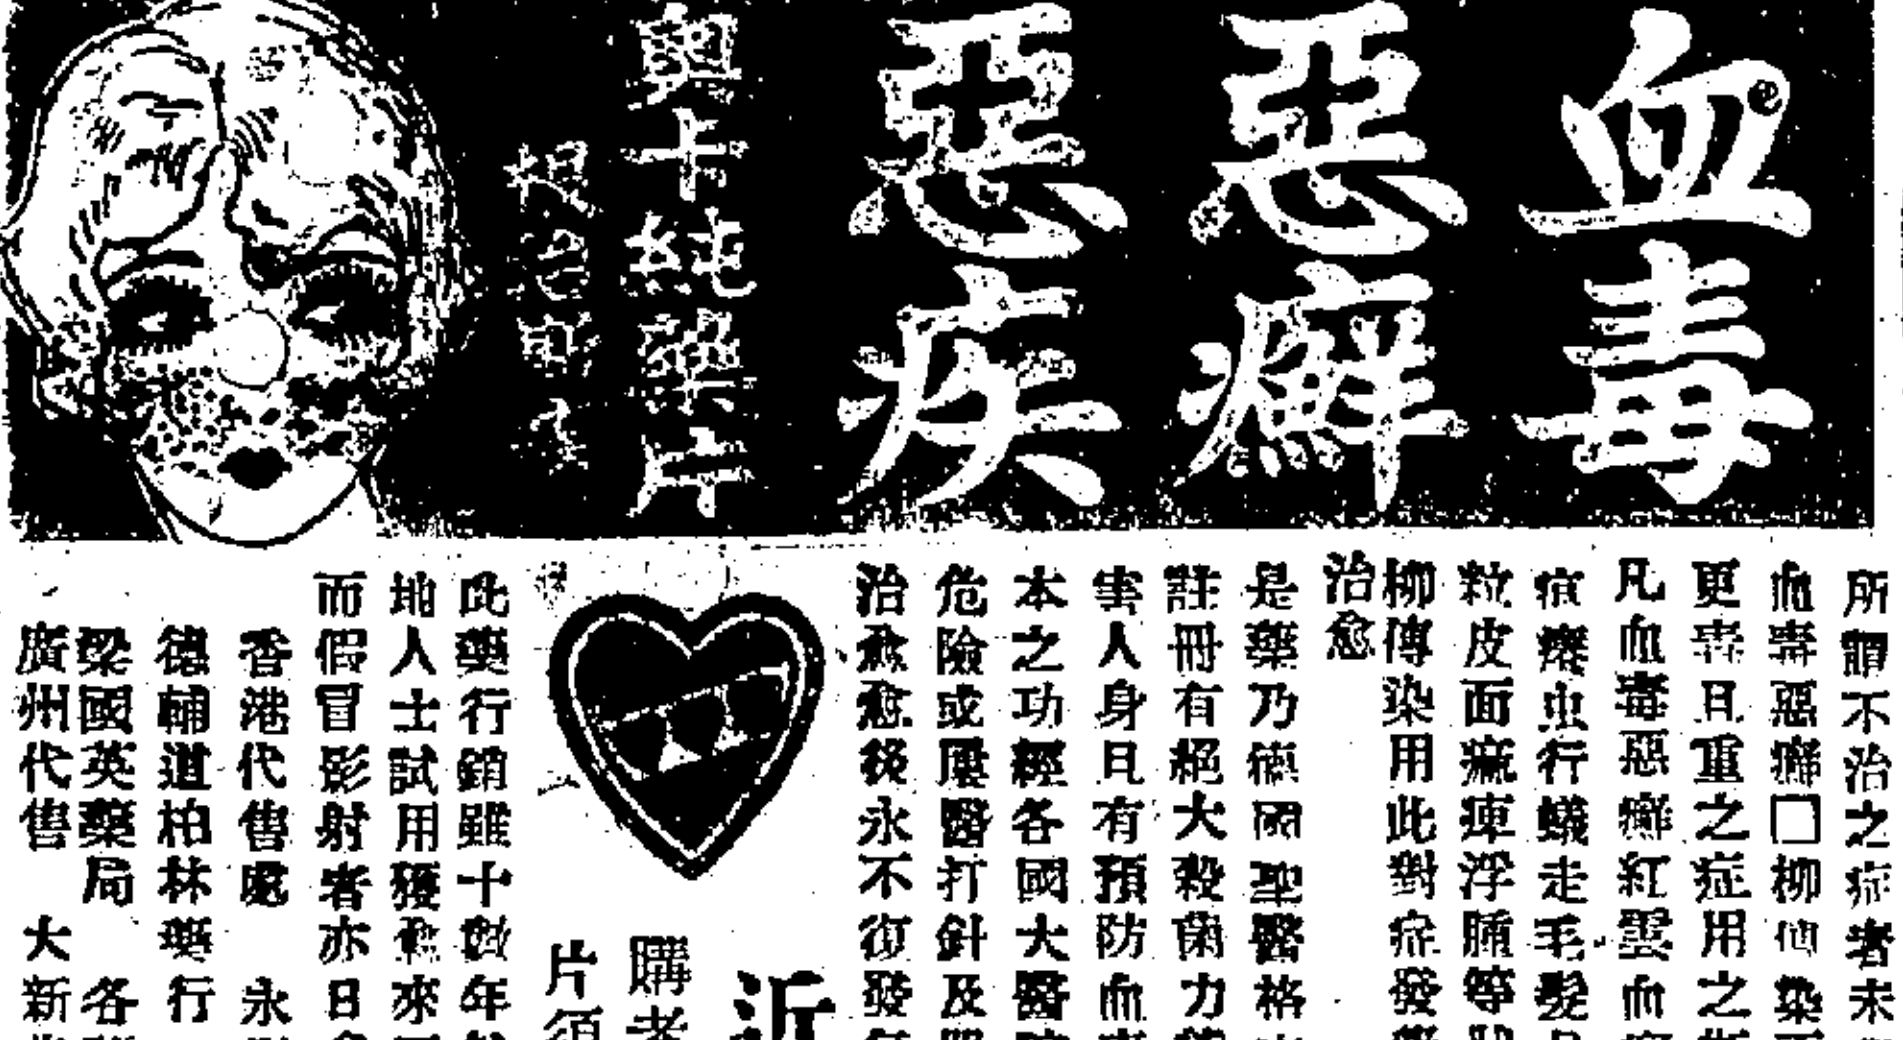 血毒
惡癬
惡疾
奥卡純藥片
根治
所謂不治之症者未
血毒惡癬□柳傳染
更毒且重之症用之
凡血毒惡癬紅雲血
痕癢虫行蟻走毛髮
粒皮面痲痺浮腫等
柳傳染用此對症發
治愈
是藥乃德國聖醫格
註冊有絕大殺菌力
害人身且有預防血
本之功經各國大醫
危險或屢醫打針及
治愈愈後永不復發
近
購者
片須
此藥行銷雖十數年
地人士試用獲愈來
而假冒影射者亦日
香港代售處 永
德輔道柏林藥行
梁國英藥局 各
廣州代售 大新